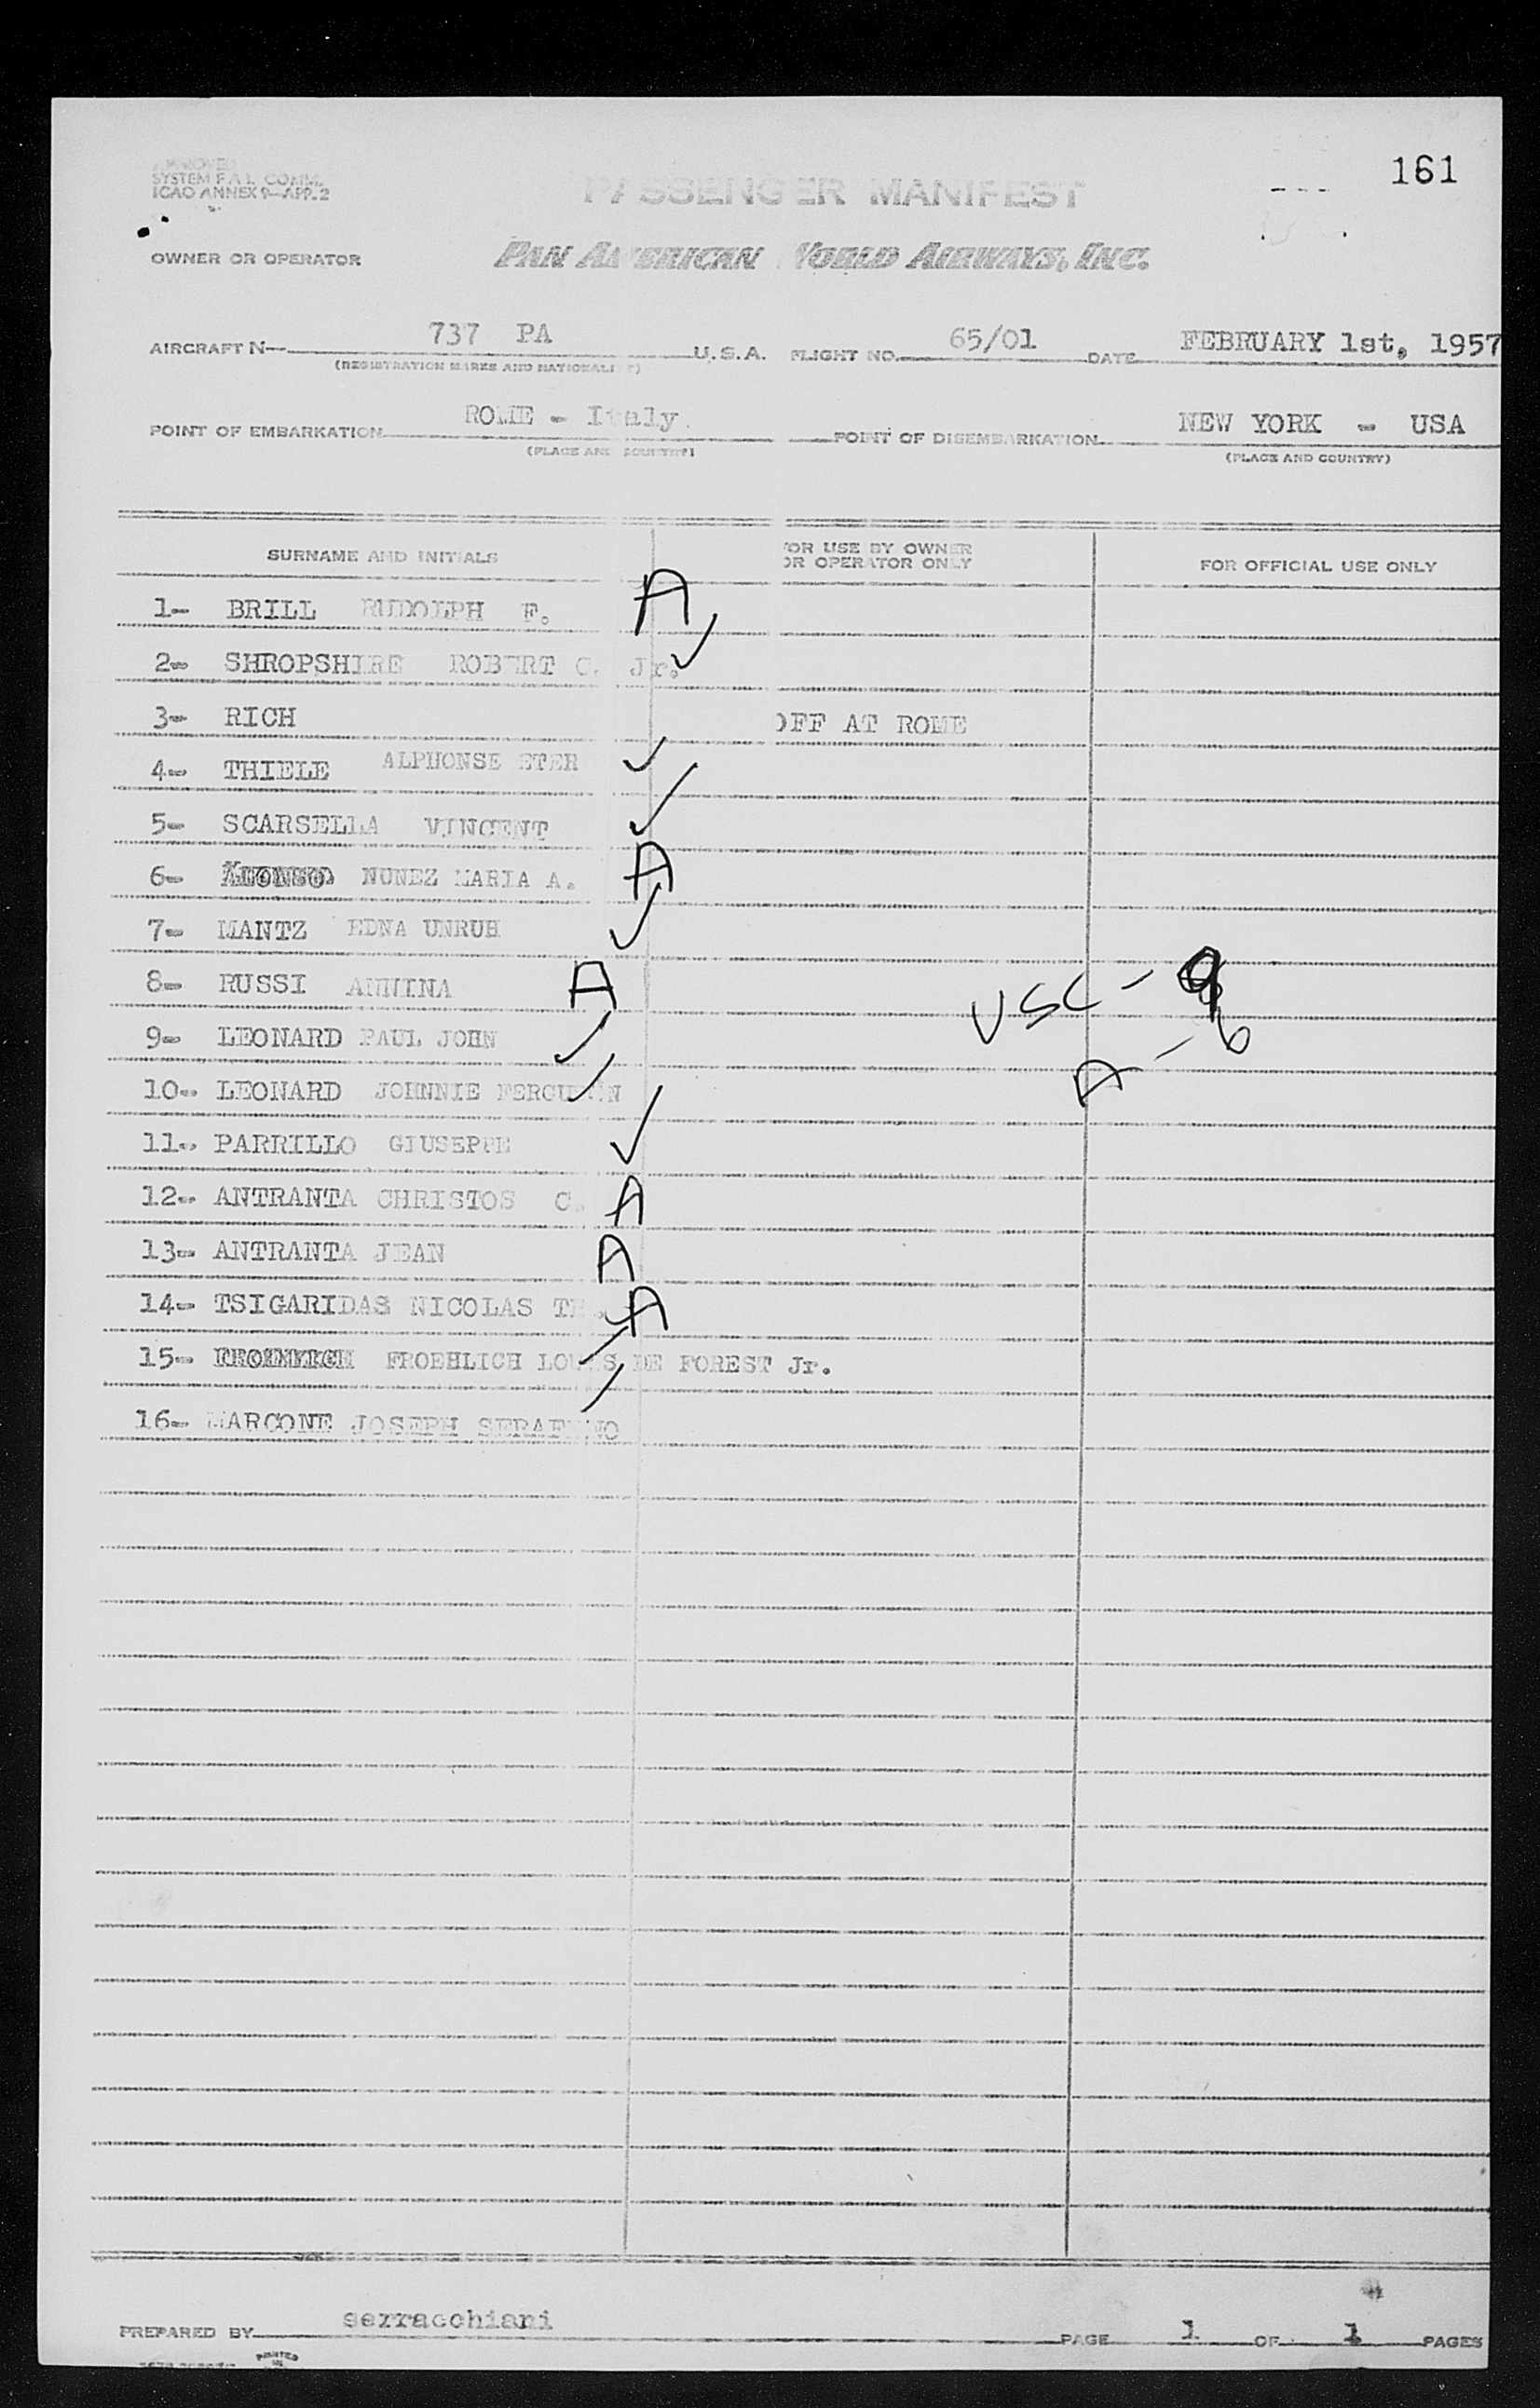 161
SYSTEM F.A.L. COMM.
ICAO ANNEX 9-APP. 2
PASSENGER MANIFEST
OWNER OR OPERATOR PAN AMERICAN WORLD AIRWAYS, INC.
AIRCRAFT N- 737 PA U.S.A. FLIGHT NO. 65/01 DATE FEBRUARY 1st, 1957
(REGISTRATION MARKS AND NATIONALITY)
POINT OF EMBARKATION ROME - Italy. POINT OF DISEMBARKATION NEW YORK - USA
(PLACE AND COUNTRY) (PLACE AND COUNTRY)
SURNAME AND INITIALS FOR USE BY OWNER OR OPERATOR ONLY FOR OFFICIAL USE ONLY
1- BRILL RUDOLPH F. A
2- SHROPSHIRE ROBERT C. Jr. ✓
3- RICH OFF AT ROME
4- THIELE ALPHONSE ETER ✓
5- SCARSELLA VINCENT ✓
6- ALONSO NUNEZ MARIA A. A
7- MANTZ EDNA UNRUH ✓
8- RUSSI ANNINA A
USC - 9
9- LEONARD PAUL JOHN ✓
A - 6
10- LEONARD JOHNNIE FERGUSON ✓
11- PARRILLO GIUSEPPE ✓
12- ANTRANTA CHRISTOS C. A
13- ANTRANTA JEAN A
14- TSIGARIDAS NICOLAS TH. A
15- FROEHLICH LOUIS DE FOREST Jr. ✓
16- MARCONE JOSEPH SERAFINO ✓
PREPARED BY serracchiani PAGE 1 OF 1 PAGES